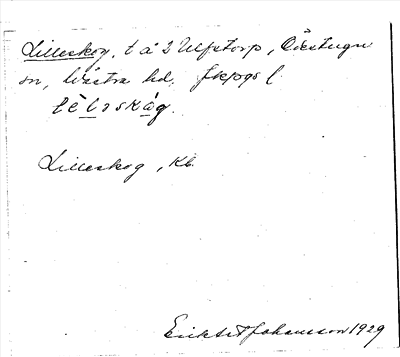 Lilleskog, t å 2 Ulfstorp, Östuna
sn, Västra hd, Jkpgs l.
lèlɜskåg.
Lilleskog, Kb.
Erik A Johansson 1929